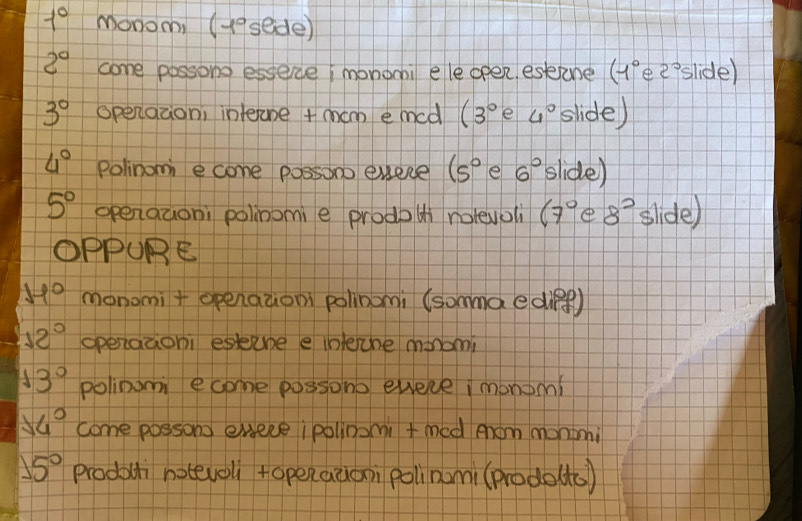 1° monomi (1° slide)
2° come possono essere i monomi e le oper. esterne (1° e 2° slide)
3° operazioni interne + mcm e mcd (3° e 4° slide)
4° polinomi e come possono essere (5° e 6° slide)
5° operazioni polinomi e prodotti notevoli (7° e 8° slide)
OPPURE
1° monomi + operazioni polinomi (somma e diff)
2° operazioni esterne e interne monomi
3° polinomi e come possono essere i monomi
4° come possono essere i polinomi + mcd mcm monomi
5° prodotti notevoli + operazioni polinomi (prodotto)